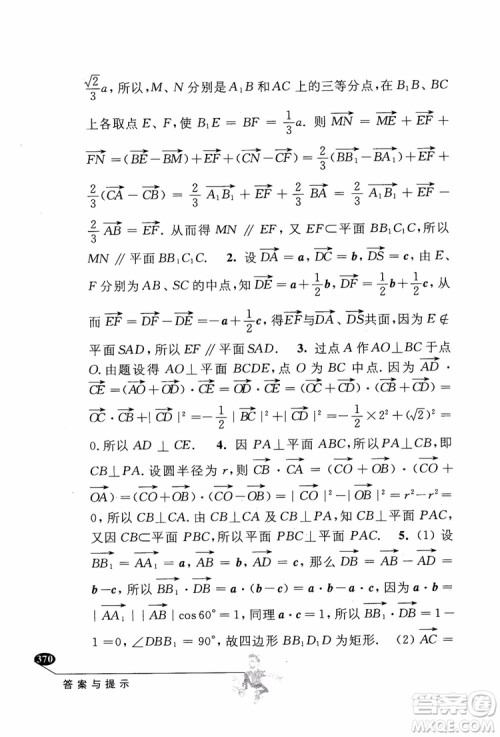 √2/3 a，所以，M、N 分别是 A₁B 和 AC 上的三等分点，在 B₁B、BC
上各取点 E、F，使 B₁E = BF = 1/3 a. 则 \overrightarrow{MN} = \overrightarrow{ME} + \overrightarrow{EF} +
\overrightarrow{FN} = (\overrightarrow{BE} − \overrightarrow{BM}) + \overrightarrow{EF} + (\overrightarrow{CN} − \overrightarrow{CF}) = 2/3(\overrightarrow{BB₁} − \overrightarrow{BA₁}) + \overrightarrow{EF} +
2/3(\overrightarrow{CA} − \overrightarrow{CB}) = 2/3 \overrightarrow{A₁B₁} + \overrightarrow{EF} + 2/3 \overrightarrow{BA} = 2/3 \overrightarrow{A₁B₁} + \overrightarrow{EF} −
2/3 \overrightarrow{AB} = \overrightarrow{EF}. 从而得 MN ∥ EF，又 EF⊂平面 BB₁C₁C，所以
MN ∥ 平面 BB₁C₁C. 2. 设 \overrightarrow{DA} = a，\overrightarrow{DC} = b，\overrightarrow{DS} = c，由 E、
F 分别为 AB、SC 的中点，知 \overrightarrow{DE} = a + 1/2 b，\overrightarrow{DF} = 1/2(b + c)，
从而 \overrightarrow{EF} = \overrightarrow{DF} − \overrightarrow{DE} = 1/2 c − a，得\overrightarrow{EF}与\overrightarrow{DA}、\overrightarrow{DS}共面，又因为 E∉
平面 SAD，所以 EF ∥ 平面 SAD. 3. 过点 A 作 AO⊥BC 于点
O. 由题设得 AO⊥平面 BCDE，点 O 为 BC 中点. 因为 \overrightarrow{AD} ·
\overrightarrow{CE} = (\overrightarrow{AO} + \overrightarrow{OD}) · \overrightarrow{CE} = \overrightarrow{OD} · \overrightarrow{CE} = (\overrightarrow{OC} + \overrightarrow{CD}) · (\overrightarrow{CB} + \overrightarrow{BE}) =
\overrightarrow{OC} · \overrightarrow{CB} + |\overrightarrow{CD}|² = −1/2|\overrightarrow{BC}|² + |\overrightarrow{CD}|² = −1/2 × 2² + (√2)² =
0. 所以 AD ⊥ CE. 4. 因 PA⊥平面 ABC，CB⊂平面 ABC，即
CB⊥PA. 设圆半径为 r，则 \overrightarrow{CB} · \overrightarrow{CA} = (\overrightarrow{CO} + \overrightarrow{OB}) · (\overrightarrow{CO} +
\overrightarrow{OA}) = (\overrightarrow{CO} + \overrightarrow{OB}) · (\overrightarrow{CO} − \overrightarrow{OB}) = |\overrightarrow{CO}|² − |\overrightarrow{OB}|² = r² − r² =
0，所以 CB⊥CA，由 CB⊥PA，CB⊥CA，所以 CB⊥平面 PAC，
又因 CB⊂平面 PBC，所以平面 PAC⊥平面 PBC. 5. (1) 设
\overrightarrow{BB₁} = \overrightarrow{AA₁} = a，\overrightarrow{AB} = b，\overrightarrow{AD} = c，那么 \overrightarrow{BB₁} · \overrightarrow{DB} = \overrightarrow{AB} − \overrightarrow{AD} =
b − c，所以 \overrightarrow{BB₁} · \overrightarrow{DB} = a · (b − c) = a · b − a · c，因为 a · b =
|\overrightarrow{AA₁}||\overrightarrow{AB}|cos60° = 1，同理 a · c = 1，所以 \overrightarrow{BB₁} · \overrightarrow{DB} = a · b −
a · c = 1 − 1 = 0，∠DBB₁ = 90°，故四边形 BB₁D₁D 为矩形. (2) \overrightarrow{AC} =
370
答案与提示